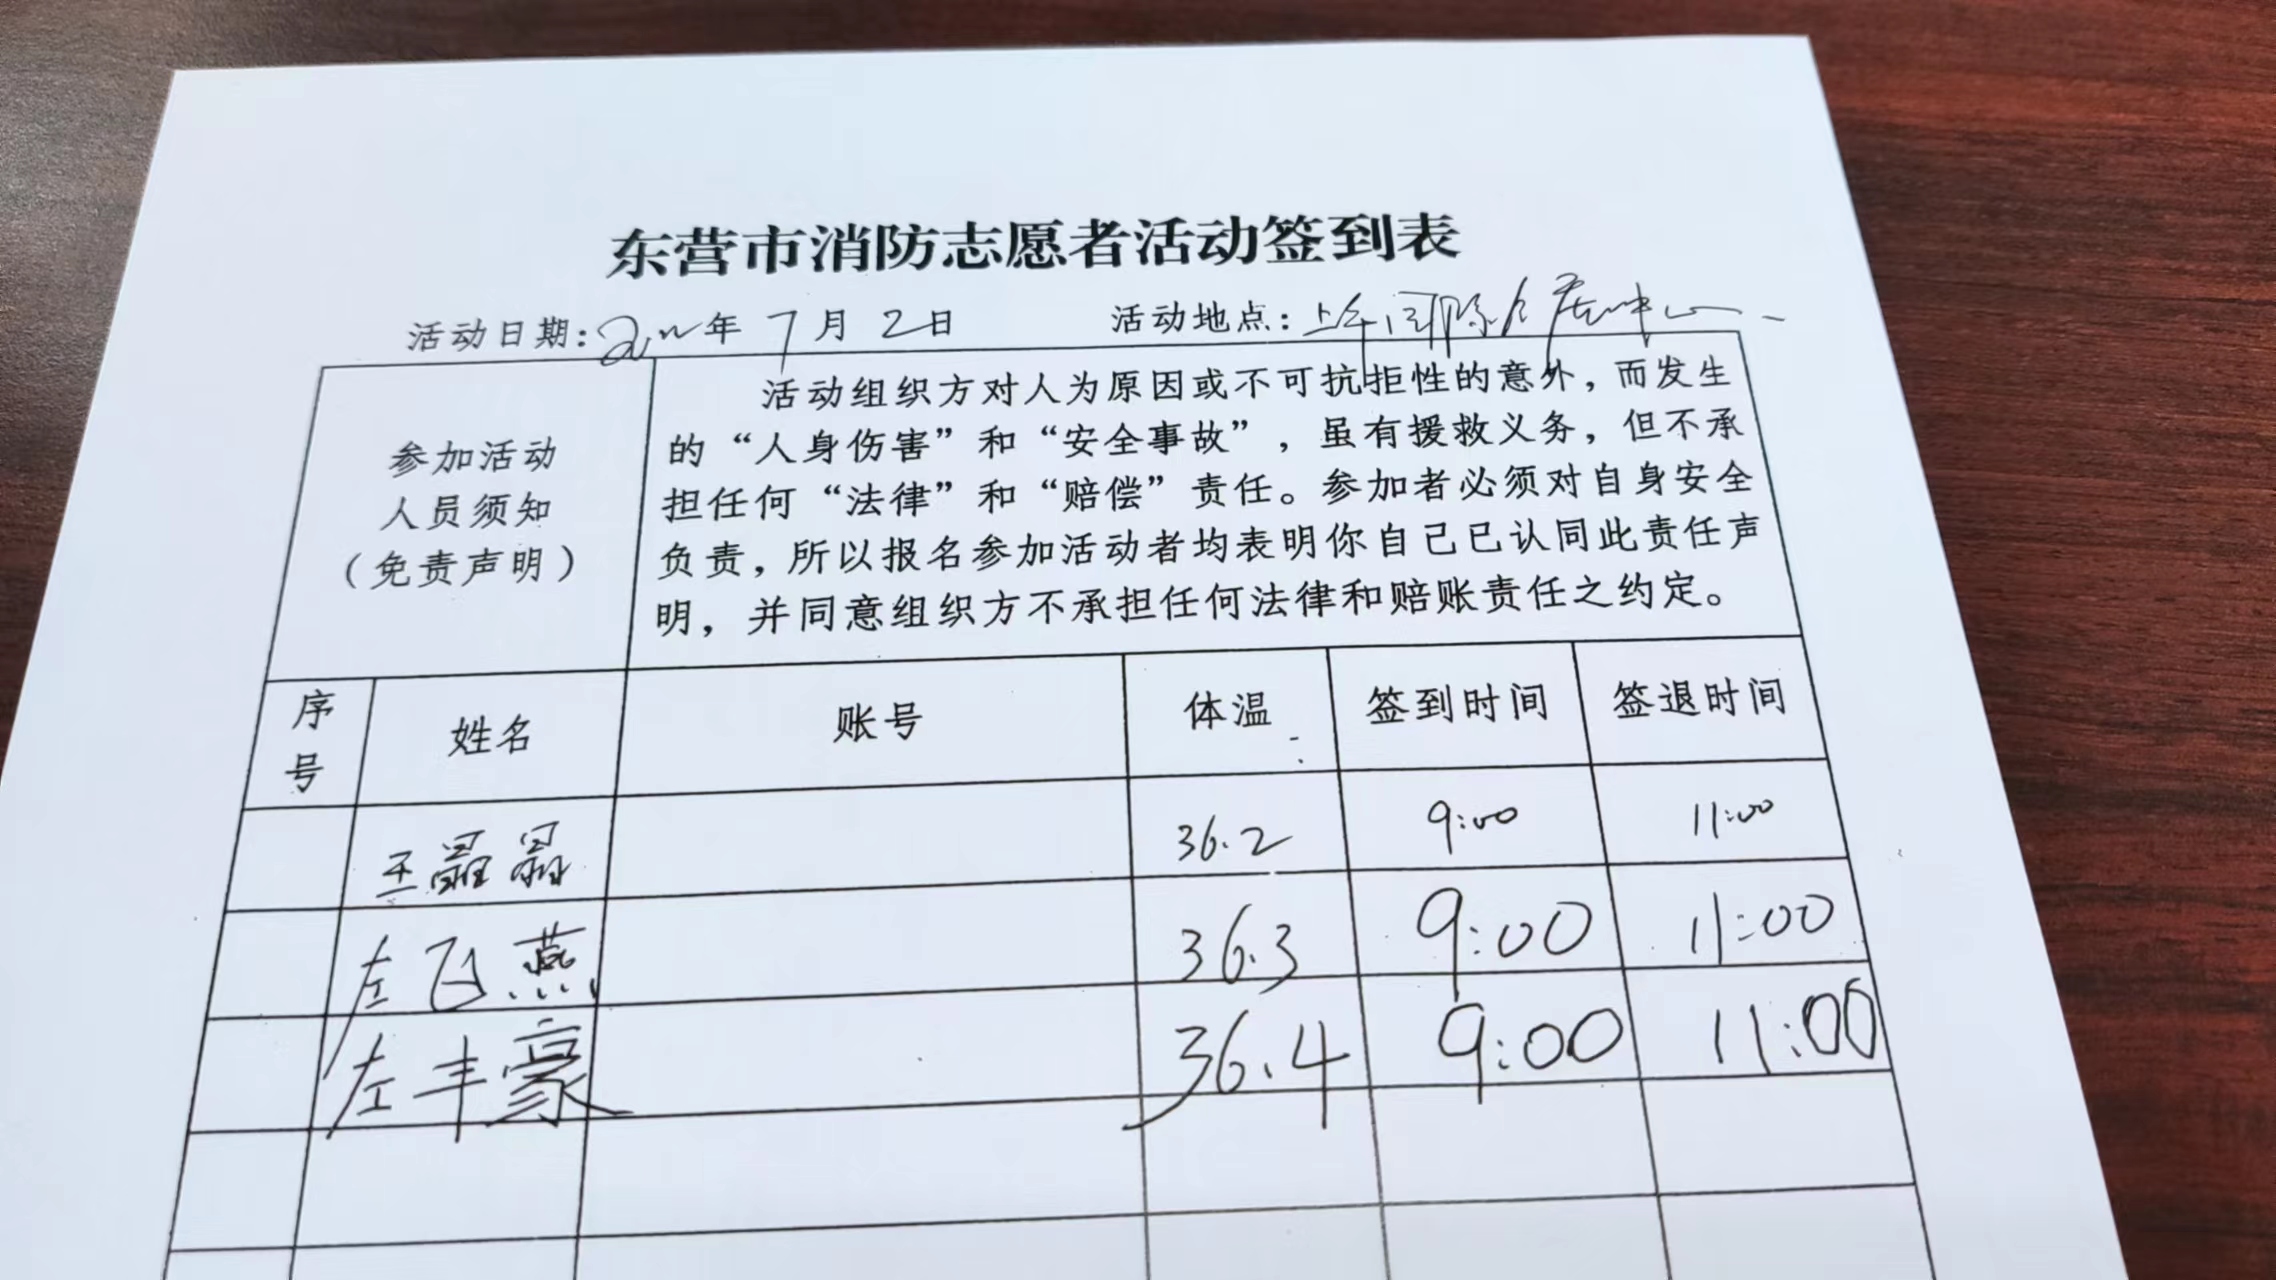 东营市消防志愿者活动签到表
活动日期: 年 7 月 2 日 活动地点:
参加活动
人员须知
(免责声明)
活动组织方对人为原因或不可抗拒性的意外，而发生
的“人身伤害”和“安全事故”，虽有援救义务，但不承
担任何“法律”和“赔偿”责任。参加者必须对自身安全
负责，所以报名参加活动者均表明你自己已认同此责任声
明，并同意组织方不承担任何法律和赔账责任之约定。
序号 姓名 账号 体温 签到时间 签退时间
王晶晶 36.2 9:00 11:00
左飞燕 36.3 9:00 11:00
左丰豪 36.4 9:00 11:00